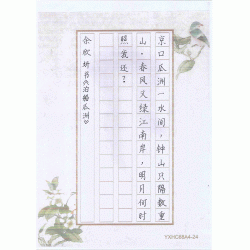 京口瓜洲一水间，钟山只隔数重
山。春风又绿江南岸，明月何时
照我还？
余欣研书《泊船瓜洲》
YXHC88A4-24